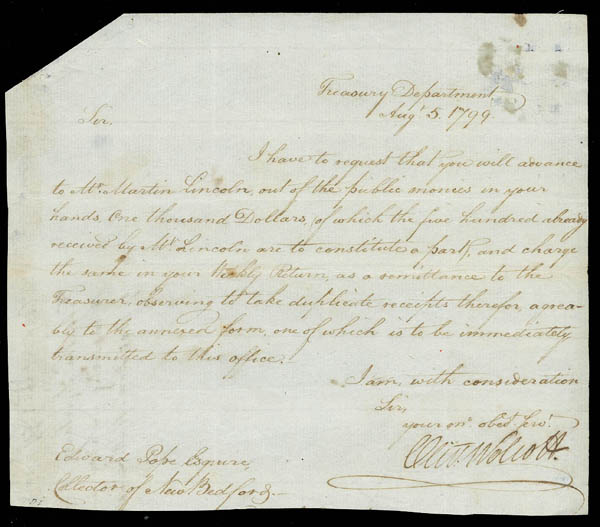 Treasury Department
Augt 5. 1799.
Sir.
I have to request that you will advance
to Mr. Martin Lincoln, out of the public monies in your
hands, One thousand Dollars, of which the five hundred already
received by Mr. Lincoln are to constitute a part, and charge
the same in your Weekly Return, as a remittance to the
Treasurer, observing to take duplicate receipts therefor, agrea-
bly to the annexed form, one of which is to be immediately
transmitted to this office.
I am, with consideration
Sir,
your mo. obedt. servt.
Oliv. Wolcott.
Edward Pope Esquire,
Collector of New Bedford.